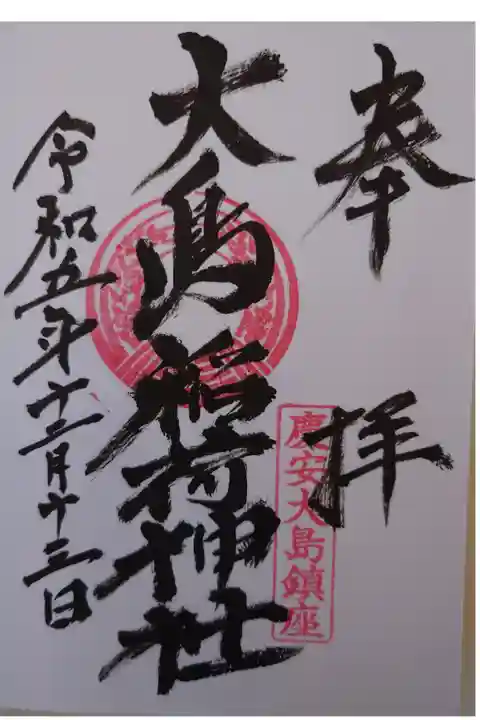 奉拝
慶安大島鎮座
大島稲荷神社
令和五年十二月十三日